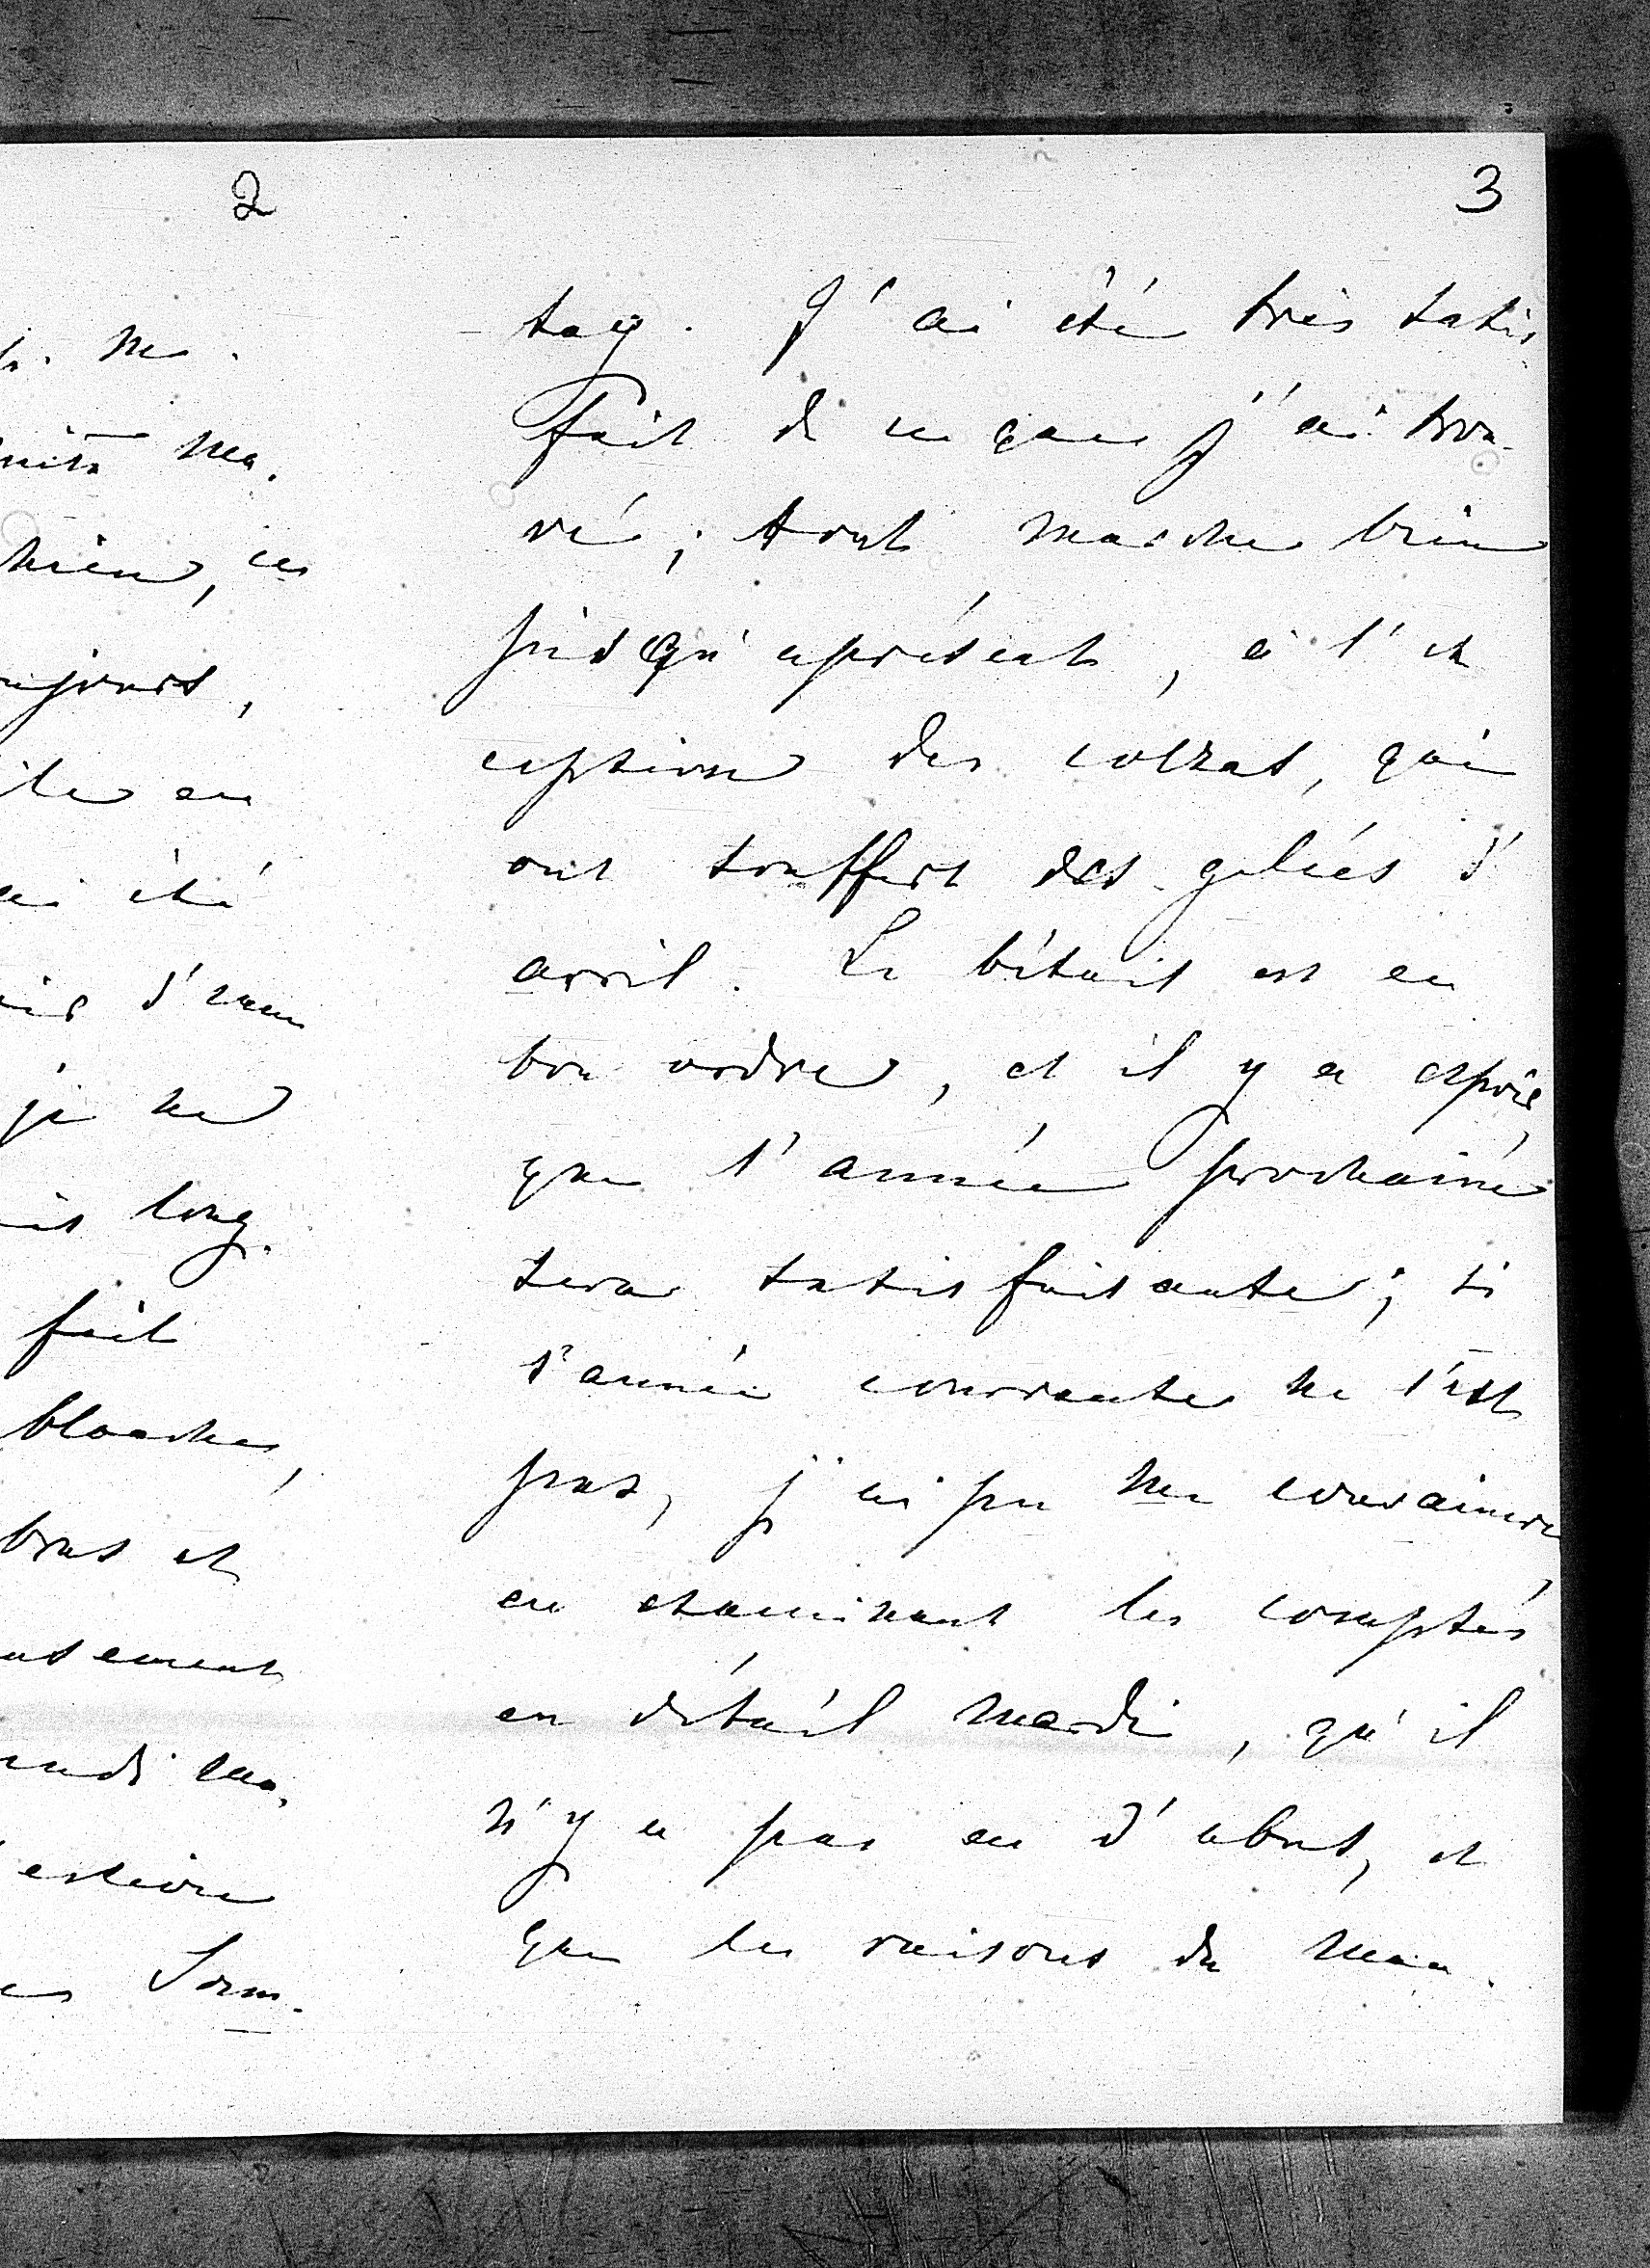 2
ma.
rien, ces
toujours,
été
d'une
je ne
long.
fait
blanches,
bras et
Som.
3
tag. J'ai été très satis
fait de ce que j'ai trou-
vé; tout marche bien
jusqu'aprésent, à l'ex
ception des colzas, qui
ont souffert des gelées d'
avril. Le bétail est en
bon ordre, et il y a espoir,
que l'année prochaine
sera satisfaisante; si
l'année courante ne l'est
pas, j'ai pu me convaincre,
en examinant les comptes
en détail mardi, qu'il
n'y a pas eu d'abus, et
que les raisons du mau.